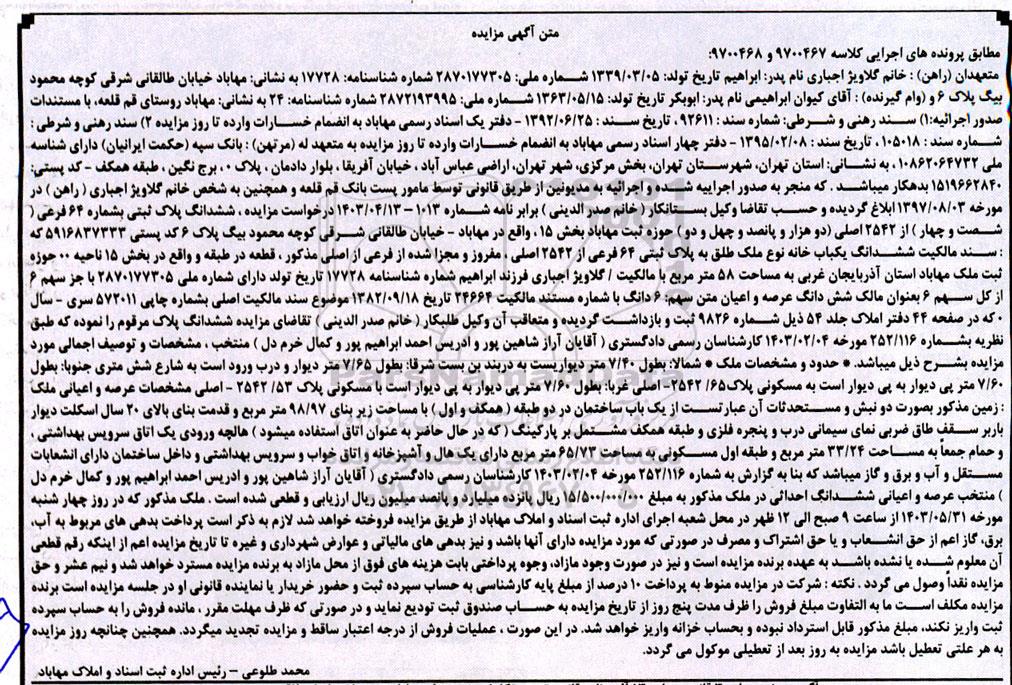 متن آگهی مزایده
مطابق پرونده های اجرایی کلاسه ۹۷۰۰۴۶۷ و ۹۷۰۰۴۶۸:
متعهدان (راهن) : خانم گلاویژ اجباری نام پدر: ابراهیم تاریخ تولد: ۱۳۳۹/۰۳/۰۵ شماره ملی: ۲۸۷۰۱۷۷۳۰۵ شماره شناسنامه: ۱۷۷۲۸ به نشانی: مهاباد خیابان طالقانی شرقی کوچه محمود
بیگ پلاک ۶ و (وام گیرنده) : آقای کیوان ابراهیمی نام پدر: ابوبکر تاریخ تولد: ۱۳۶۳/۰۵/۱۵ شماره ملی: ۲۸۷۲۱۹۳۹۹۵ شماره شناسنامه: ۲۴ به نشانی: مهاباد روستای قم قلعه، با مستندات
صدور اجرائیه:۱) سند رهنی و شرطی: شماره سند : ۹۲۶۱۱ ، تاریخ سند : ۱۳۹۲/۰۶/۲۵ - دفتر یک اسناد رسمی مهاباد به انضمام خسارات وارده تا روز مزایده ۲) سند رهنی و شرطی :
شماره سند : ۱۰۵۰۱۸ ، تاریخ سند : ۱۳۹۵/۰۲/۰۸ - دفتر چهار اسناد رسمی مهاباد به انضمام خسارات وارده تا روز مزایده به متعهد له (مرتهن) : بانک سپه (حکمت ایرانیان) دارای شناسه
ملی ۱۰۸۶۲۰۶۴۷۳۲ ، به نشانی: استان تهران، شهرستان تهران، بخش مرکزی، شهر تهران، اراضی عباس آباد ، خیابان آفریقا ، بلوار دادمان ، پلاک ۰ ، برج نگین ، طبقه همکف - کد پستی:
۱۵۱۹۶۶۲۸۴۰ بدهکار میباشد . که منجر به صدور اجراییه شده و اجرائیه به مدیونین از طریق قانونی توسط مامور پست بانک قم قلعه و همچنین به شخص خانم گلاویژ اجباری ( راهن ) در
مورخه ۱۳۹۷/۰۸/۰۳ ابلاغ گردیده و حسب تقاضا وکیل بستانکار (خانم صدر الدینی ) برابر نامه شماره ۱۰۱۳ - ۱۴۰۳/۰۴/۱۳ درخواست مزایده ، ششدانگ پلاک ثبتی بشماره ۶۴ فرعی (
شصت و چهار) از ۲۵۴۲ اصلی (دو هزار و پانصد و چهل و دو ) حوزه ثبت مهاباد بخش ۱۵ ، واقع در مهاباد - خیابان طالقانی شرقی کوچه محمود بیگ پلاک ۶ کد پستی ۵۹۱۶۸۳۷۳۳۳ که
: سند مالکیت ششدانگ یکباب خانه نوع ملک طلق به پلاک ثبتی ۶۴ فرعی از ۲۵۴۲ اصلی ، مفروز و مجزا شده از فرعی از اصلی مذکور ، قطعه در طبقه و واقع در بخش ۱۵ ناحیه ۰۰ حوزه
ثبت ملک مهاباد استان آذربایجان غربی به مساحت ۵۸ متر مربع با مالکیت / گلاویژ اجباری فرزند ابراهیم شماره شناسنامه ۱۷۷۲۸ تاریخ تولد دارای شماره ملی ۲۸۷۰۱۷۷۳۰۵ با جز سهم ۶
از کل سهم ۶ بعنوان مالک شش دانگ عرصه و اعیان متن سهم: ۶ دانگ با شماره مستند مالکیت ۲۴۶۶۴ تاریخ ۱۳۸۲/۰۹/۱۸ موضوع سند مالکیت اصلی بشماره چاپی ۵۷۲۰۱۱ سری - سال
۰ که در صفحه ۴۴ دفتر املاک جلد ۵۴ ذیل شماره ۹۸۲۶ ثبت و بازداشت گردیده و متعاقب آن وکیل طلبکار ( خانم صدر الدینی ) تقاضای مزایده ششدانگ پلاک مرقوم را نموده که طبق
نظریه بشماره ۲۵۲/۱۱۶ مورخه ۱۴۰۳/۰۲/۰۴ کارشناسان رسمی دادگستری ( آقایان آراز شاهین پور و ادریس احمد ابراهیم پور و کمال خرم دل ) منتخب ، مشخصات و توصیف اجمالی مورد
مزایده بشرح ذیل میباشد. * حدود و مشخصات ملک * شمالا: بطول ۷/۴۰ متر دیواریست به دربند بن بست شرقا: بطول ۷/۶۵ متر دیوار و درب ورود است به شارع شش متری جنوبا: بطول
۷/۶۰ متر پی دیوار به پی دیوار است به مسکونی پلاک ۶۵/ ۲۵۴۲ - اصلی غربا: بطول ۷/۶۰ متر پی دیوار به پی دیوار است به مسکونی پلاک ۵۳/ ۲۵۴۲ - اصلی مشخصات عرصه و اعیانی ملک
: زمین مذکور بصورت دو نبش و مستحدثات آن عبارتست از یک باب ساختمان در دو طبقه ( همکف و اول ) با مساحت زیر بنای ۹۸/۹۷ متر مربع و قدمت بنای بالای ۲۰ سال اسکلت دیوار
باربر سقف طاق ضربی نمای سیمانی درب و پنجره فلزی و طبقه همکف مشتمل بر پارکینگ ( که در حال حاضر به عنوان اتاق استفاده میشود ) هالچه ورودی یک اتاق سرویس بهداشتی ،
و حمام جمعاً به مساحت ۳۳/۲۴ متر مربع و طبقه اول مسکونی به مساحت ۶۵/۷۳ متر مربع دارای یک هال و آشپزخانه و اتاق خواب و سرویس بهداشتی و داخل ساختمان دارای انشعابات
مستقل و آب و برق و گاز میباشد که بنا به گزارش به شماره ۲۵۲/۱۱۶ مورخه ۱۴۰۳/۰۲/۰۴ کارشناسان رسمی دادگستری ( آقایان آراز شاهین پور و ادریس احمد ابراهیم پور و کمال خرم دل
) منتخب عرصه و اعیانی ششدانگ احداثی در ملک مذکور به مبلغ ۱۵/۵۰۰/۰۰۰/۰۰۰ ریال پانزده میلیارد و پانصد میلیون ریال ارزیابی و قطعی شده است . ملک مذکور که در روز چهار شنبه
مورخه ۱۴۰۳/۰۵/۳۱ از ساعت ۹ صبح الی ۱۲ ظهر در محل شعبه اجرای اداره ثبت اسناد و املاک مهاباد از طریق مزایده فروخته خواهد شد لازم به ذکر است پرداخت بدهی های مربوط به آب،
برق، گاز اعم از حق انشعاب و یا حق اشتراک و مصرف در صورتی که مورد مزایده دارای آنها باشد و نیز بدهی های مالیاتی و عوارض شهرداری و غیره تا تاریخ مزایده اعم از اینکه رقم قطعی
آن معلوم شده یا نشده باشد به عهده برنده مزایده است و نیز در صورت وجود مازاد، وجوه پرداختی بابت هزینه های فوق از محل مازاد به برنده مزایده مسترد خواهد شد و نیم عشر و حق
مزایده نقداً وصول می گردد . نکته : شرکت در مزایده منوط به پرداخت ۱۰ درصد از مبلغ پایه کارشناسی به حساب سپرده ثبت و حضور خریدار یا نماینده قانونی او در جلسه مزایده است برنده
مزایده مکلف است ما به التفاوت مبلغ فروش را ظرف مدت پنج روز از تاریخ مزایده به حساب صندوق ثبت تودیع نماید و در صورتی که ظرف مهلت مقرر ، مانده فروش را به حساب سپرده
ثبت واریز نکند، مبلغ مذکور قابل استرداد نبوده و بحساب خزانه واریز خواهد شد. در این صورت ، عملیات فروش از درجه اعتبار ساقط و مزایده تجدید میگردد. همچنین چنانچه روز مزایده
به هر علتی تعطیل باشد مزایده به روز بعد از تعطیلی موکول می گردد.
محمد طلوعی - رئیس اداره ثبت اسناد و املاک مهاباد